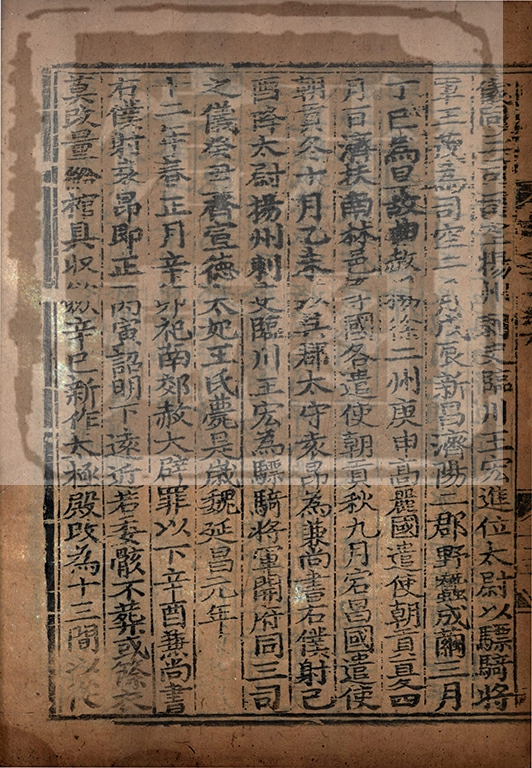 儀同三司司空揚州刺史臨川王宏進位太尉以驃騎將
軍王茂為司空二月戊辰新昌濟陽二郡野蠶成繭三月
丁巳為旱故曲赦揚徐二州庚申高麗國遣使朝貢夏四
月百濟扶南林邑等國各遣使朝貢秋九月宕昌國遣使
朝貢冬十月乙亥以吳郡太守袁昂為兼尚書右僕射己
酉降太尉揚州刺史臨川王宏為驃騎將軍開府同三司
之儀癸丑齊宣德太妃王氏薨是歲魏延昌元年
十二年春正月辛卯祀南郊赦大辟罪以下辛酉兼尚書
右僕射袁昂即正丙寅詔明下遠近若委骸不葬或篨衣
莫改量給棺具收斂辛巳新作太極殿改為十三間以從